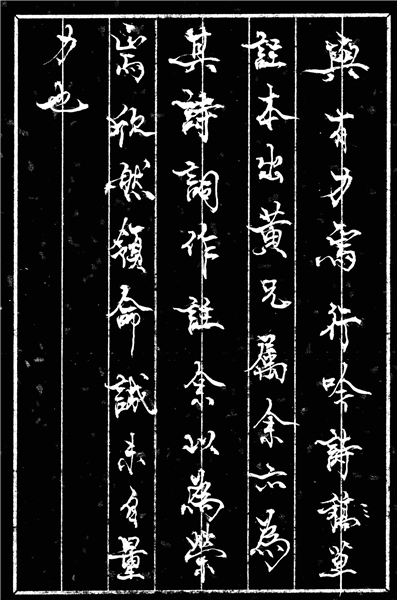 與有力焉行吟詩稿草
註本出黃兄属余亦為
其詩詞作註余以為榮
焉欣然領命誠未自量
力也